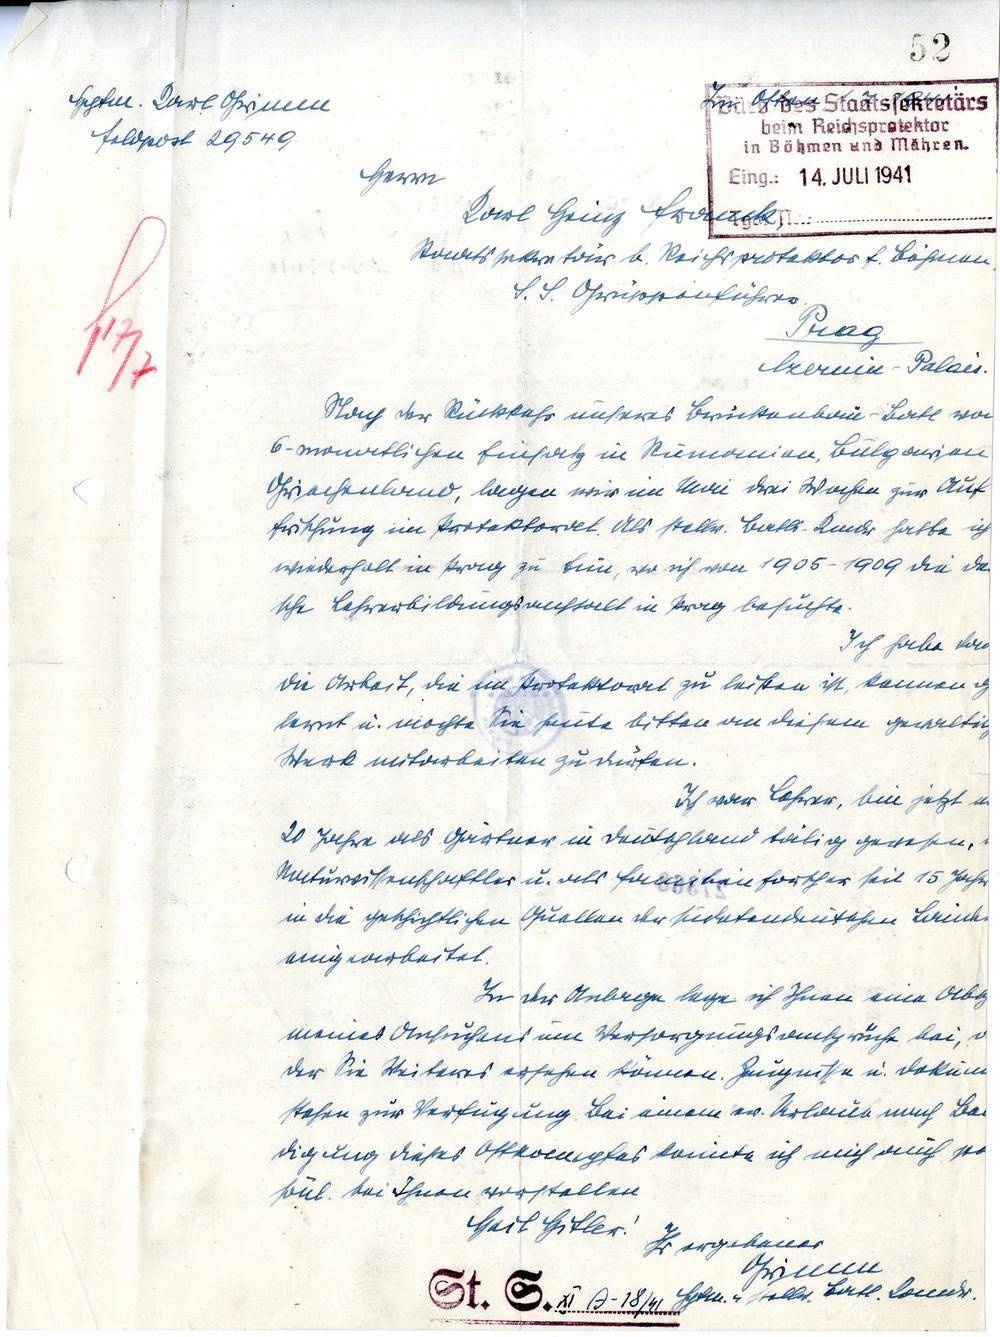 52
Hptm. Karl Grimm
Feldpost 29549.
Im Osten
Büro des Staatssekretärs
beim Reichsprotektor
in Böhmen und Mähren.
Eing.: 14. JULI 1941
Herrn
Karl Heinz Franck,
Staatssekretär b. Reichsprotektor f. Böhmen
S. S. Gruppenführer
Prag
Czernin-Palais.
17/7
Nach der Rückkehr unseres Brückenbau-Batl von
6-monatlichen Einsatz in Rumänien, Bulgarien
Griechenland, lagen wir im Mai drei Wochen zur Auf
frischung im Protektorat. Als stellv. Batls. Kmdr hatte ich
wiederholt in Prag zu tun, wo ich von 1905-1909 die deu
sche Lehrerbildungsanstalt in Prag besuchte.
Ich habe dan
die Arbeit, die im Protektorat zu leisten ist, kennen g
lernt u. möchte Sie heute bitten an diesem gewaltig
Werk mitarbeiten zu dürfen.
Ich war Lehrer, bin jetzt
20 Jahre als Gärtner in Deutschland tätig gewesen,
Naturwissenschaftler u. als Familienforscher seit 15 Jahr
in die geschichtlichen Quellen der sudetendeutschen Länder
eingearbeitet.
In der Anlage lege ich Ihnen eine Absch
meines Ansuchens um Versorgungsansprüche bei,
der Sie Weiteres ersehen können. Zeugnisse u. Dokum
stehen zur Verfügung. Bei einem ev. Urlaub nach Been
digung dieses Ostkampfes könnte ich mich auch per
sönl. bei Ihnen vorstellen
Heil Hitler!
Ihr ergebener
Grimm
Hptm. u. stellv. Batl. Komdr.
St. S. XI D-18/41